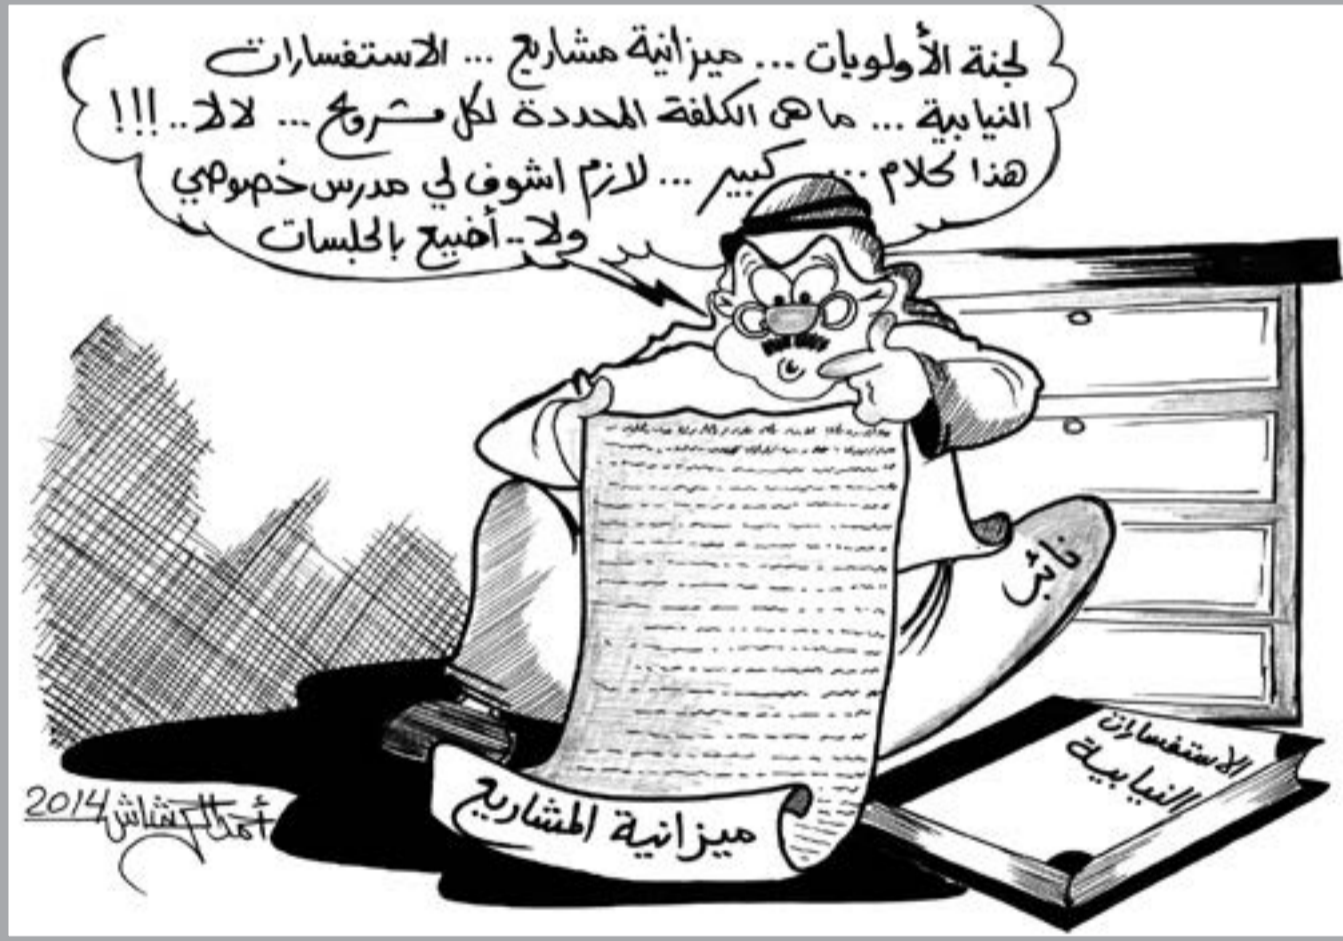 لجنة الأولويات ... ميزانية مشاريع ... الاستفسارات
النيابية ... ما هى الكلفة المحددة لكل مشروع ... لالا..!!!
هذا كلام ... كبير ... لازم اشوف لي مدرس خصوصي
ولا.. أضيع بالجلسات
نائب
الاستفسارات
النيابية
ميزانية المشاريع
أحمد 2014